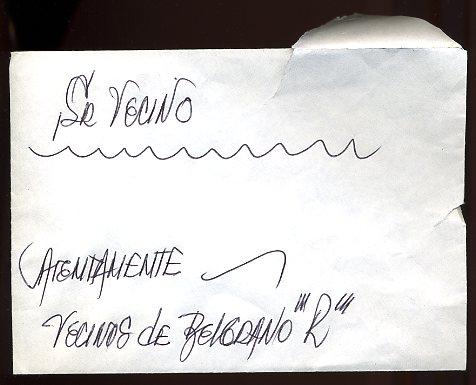 Sr Vecino
Atentamente
Vecinos de Belgrano "R"